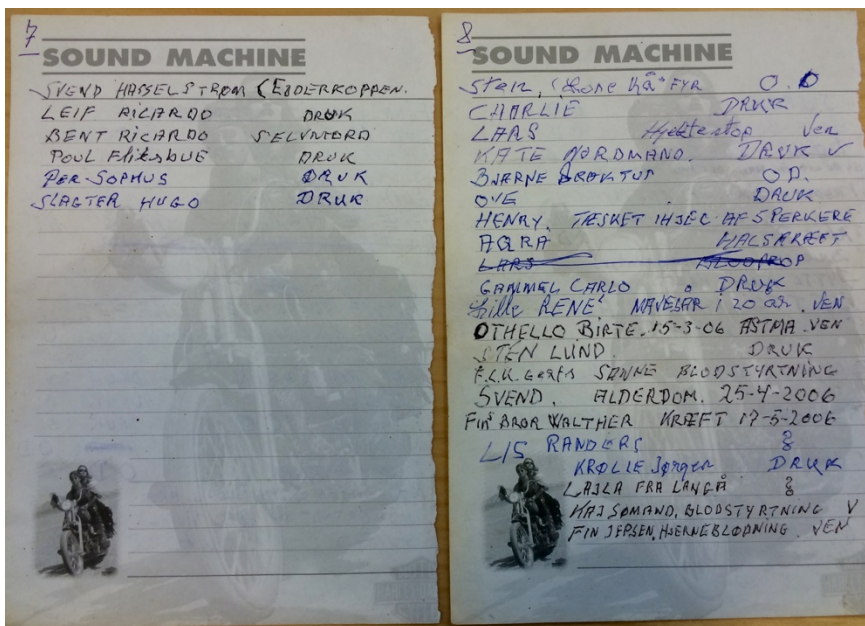 7
SOUND MACHINE
SVEND HASSELSTRØM (EDDERKOPPEN.
LEIF RICARDO DRUK
BENT RICARDO SELVMORD
POUL DRUK
PER SOPHUS DRUK
SLAGTER HUGO DRUK
8
SOUND MACHINE
Sten, FYR O.D
CHARLIE DRUK
LARS Hjertestop Ven
KATE NORDMAND. DRUK V
BJARNE OD.
OVE . DRUK
HENRY. TÆSKET IHJEL AF SPERKERE
AQRA HALSKRÆFT
LARS BLODPROP
GAMMEL CARLO . DRUK
Lille RENÉ MAVESAR i 20 år. VEN
OTHELLO BIRTE. 15-3-06 ASTMA. VEN
STEN LUND. DRUK
F.C.K. SANNE BLODSTYRTNING
SVEND. ALDERDOM. 25-4-2006
FINS BROR WALTHER KRÆFT 17-5-2006
LIS RANDERS
KRØLLE Jørgen DRUK
LAJLA FRA LANGÅ
KAJ SØMAND, BLODSTYRTNING V
FIN JEPSEN, HJERNEBLØDNING. VEN